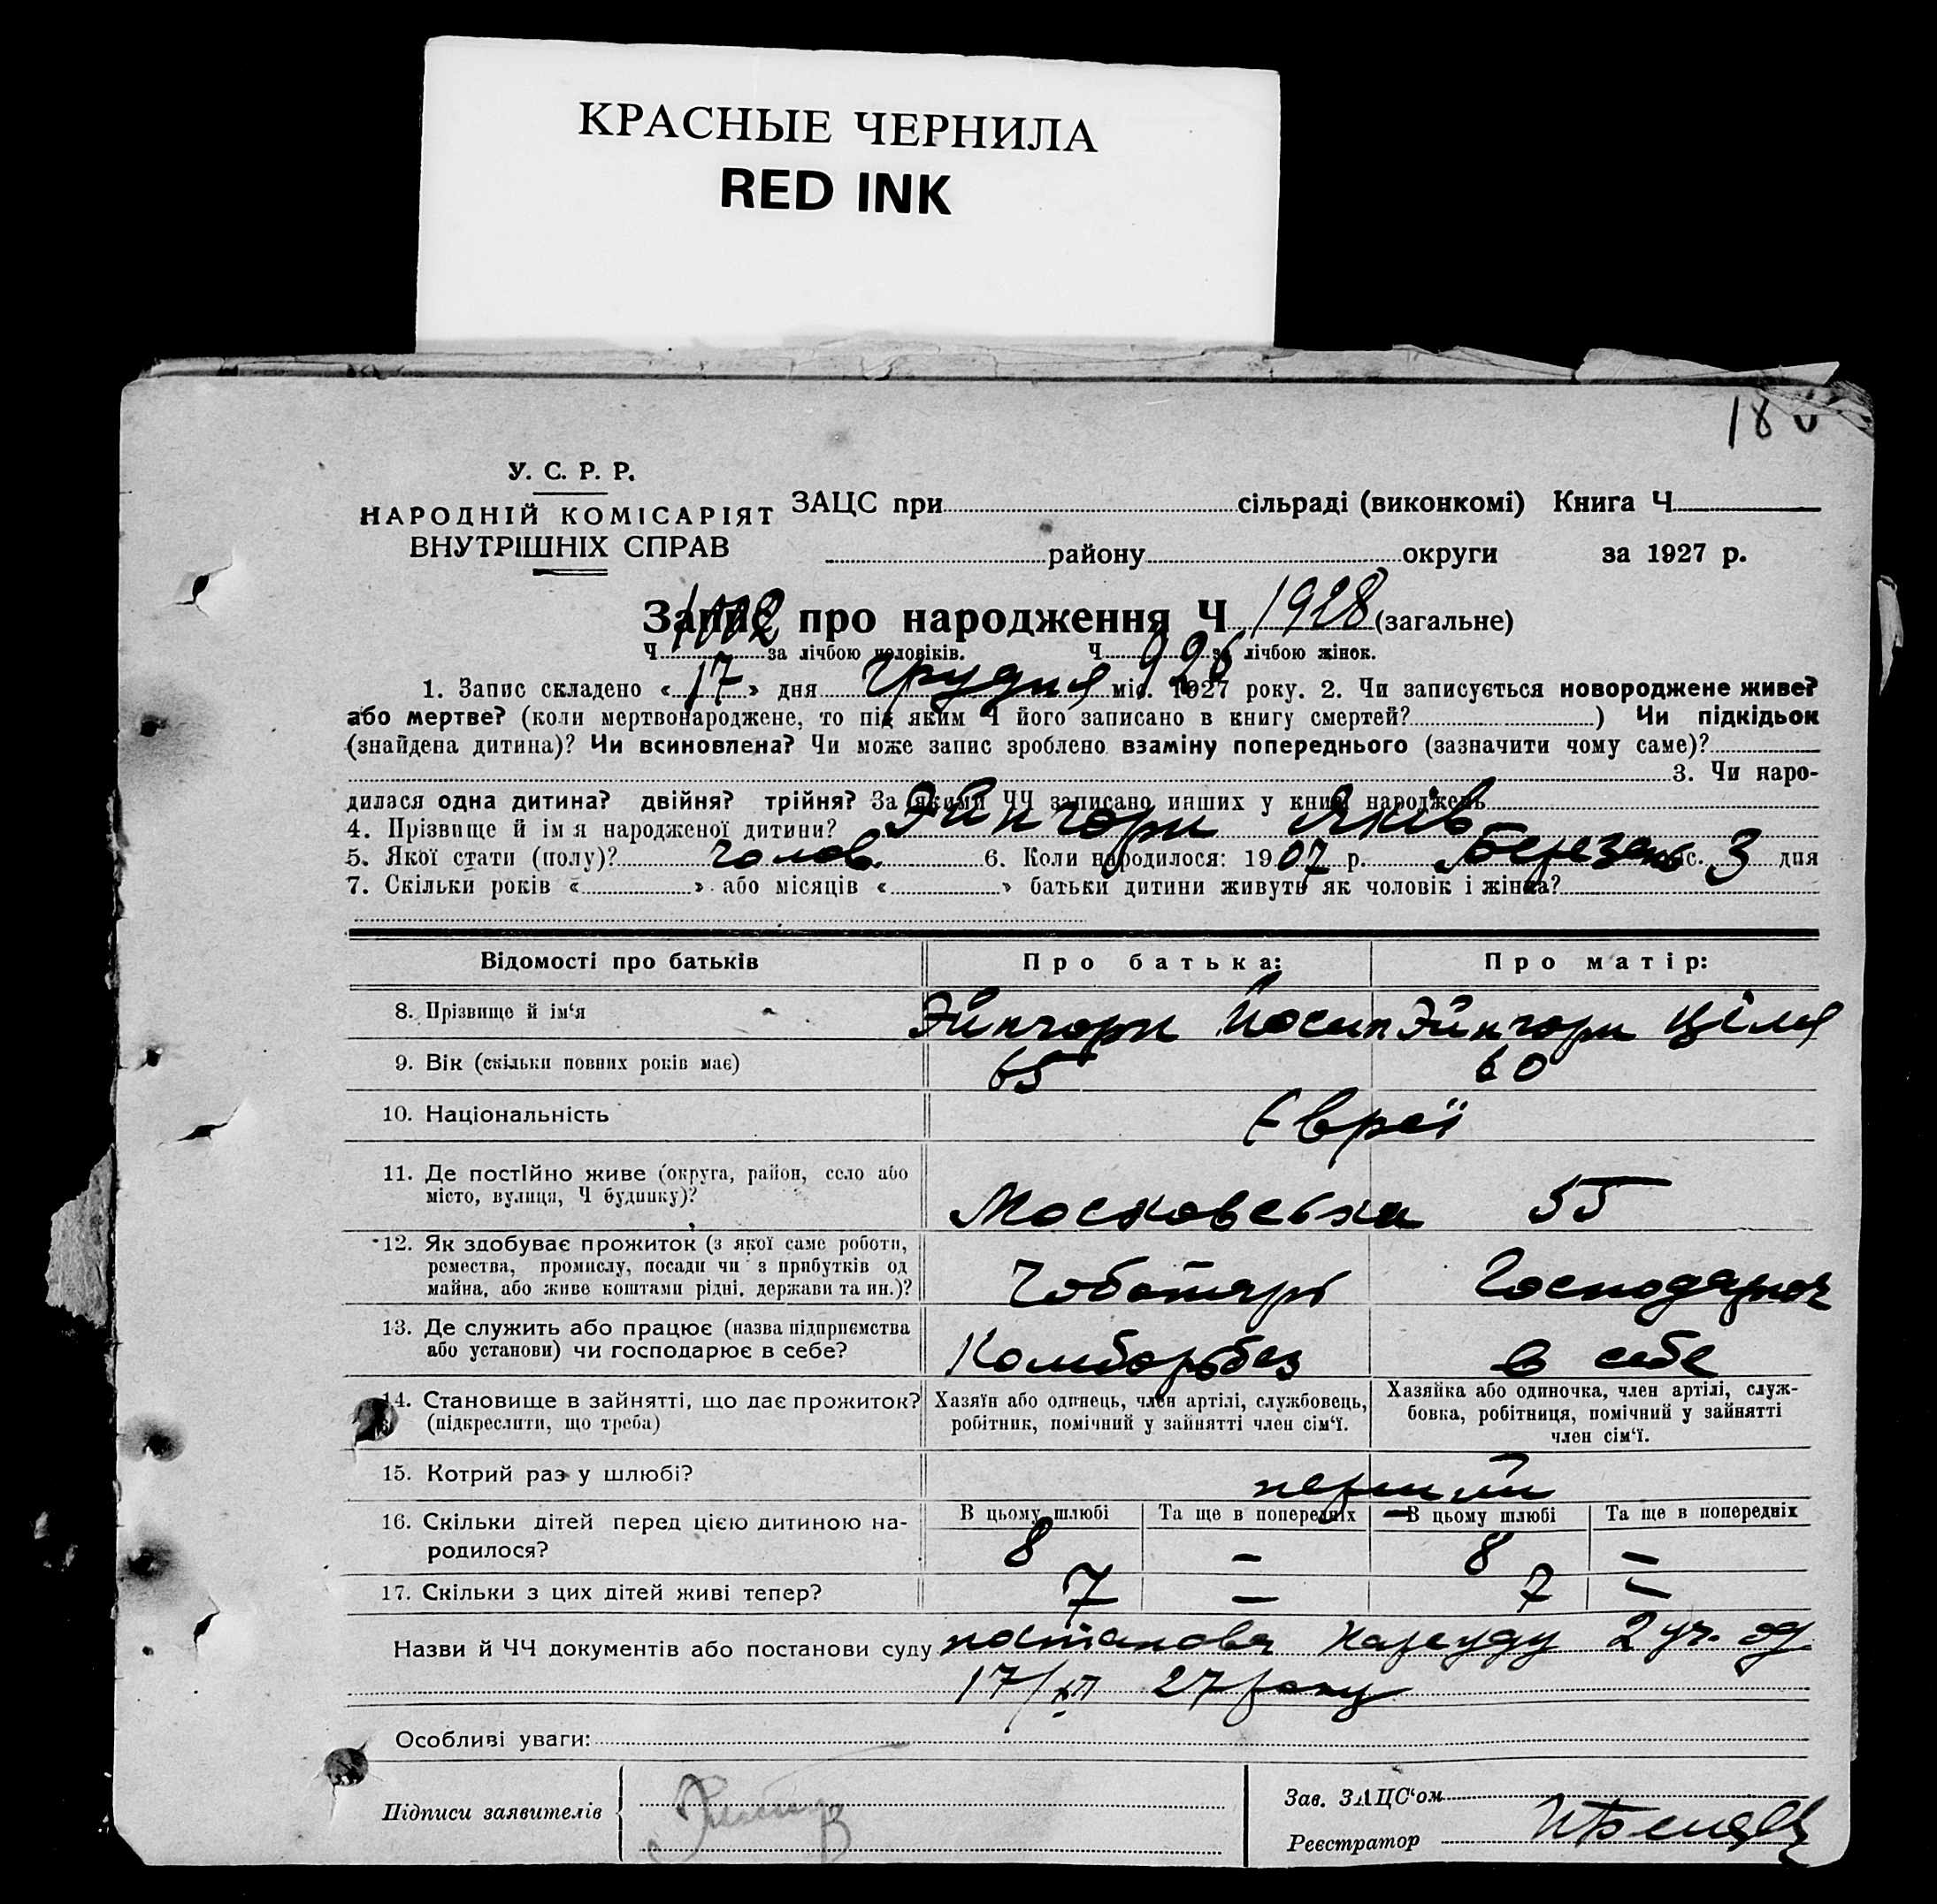 КРАСНЫЕ ЧЕРНИЛА
RED INK
180
У. С. Р. Р.
НАРОДНІЙ КОМІСАРІЯТ
ВНУТРІШНІХ СПРАВ
ЗАЦС при сільраді (виконкомі) Книга Ч.
району округи за 1927 р.
Запис про народження Ч 1928 (загальне)
Ч. 1002 за лічбою чоловіків. Ч. 926 за лічбою жінок.
1. Запис складено « 17 » дня Грудня міс. 1927 року. 2. Чи записується новороджене живе?
або мертве? (коли мертвонароджене, то під яким Ч його записано в книгу смертей? ) Чи підкідьок
(знайдена дитина)? Чи всиновлена? Чи може запис зроблено взаміну попереднього (зазначити чому саме)?
3. Чи наро-
дилася одна дитина? двійня? трійня? За якими ЧЧ записано инших у книзі народжень
4. Прізвище й ім я народженої дитини? Эйнгорн Яків
5. Якої стати (полу)? чолов. 6. Коли народилося: 1907 р. Березень міс. 3 дня
7. Скільки років « » або місяців « » батьки дитини живуть як чоловік і жінка?
Відомості про батьків Про батька: Про матір:
8. Прізвище й ім‘я Эйнгорн Йосип Эйнгорн Ціля
9. Вік (скільки повних років має) 65 60
10. Національність Євреї
11. Де постійно живе (округа, район, село або
місто, вулиця, Ч будинку)? Московська 55
12. Як здобуває прожиток (з якої саме роботи,
ремества, промислу, посади чи з прибутків од
майна, або живе коштами рідні, держави та ин.)? Чоботарь Господарює
13. Де служить або працює (назва підприємства
або установи) чи господарює в себе? Комборьбез в себе
14. Становище в зайнятті, що дає прожиток?
(підкреслити, що треба)
Хазяїн або одинець, член артілі, службовець,
робітник, помічний у зайнятті член сім‘ї.
Хазяйка або одиночка, член артілі, служ-
бовка, робітниця, помічний у зайнятті
член сім‘ї.
15. Котрий раз у шлюбі? перший
16. Скільки дітей перед цією дитиною на-
родилося?
В цьому шлюбі Та ще в попередніх В цьому шлюбі Та ще в попередніх
8 – 8 –
17. Скільки з цих дітей живі тепер? 7 – 7 –
Назви й ЧЧ документів або постанови суду постанова Нарсуду 2 уч. од
17/XII 27 року
Особливі уваги:
Підписи заявителів
Зав. ЗАЦС‘ом
Реєстратор